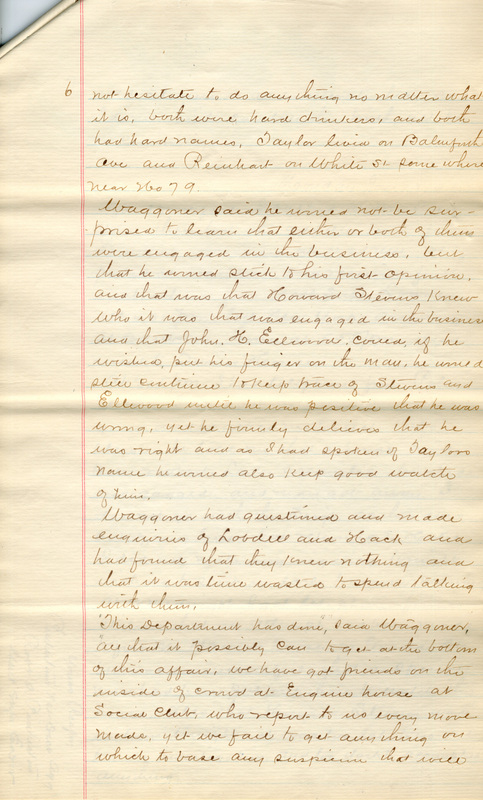 6
not hesitate to do anything no matter what
it is, both were hard drinkers, and both
had hard names, Taylor lived on
Ave and Reinhart on White St. some where
near No 79.
Waggoner said he would not be sur-
prised to learn that either or both of them
were engaged in the business, but
that he would stick to his first opinion,
and that was that Howard Stevens knew
who it was that was engaged in the business
and that John. H. Ellwood, could, if he
wished, put his finger on the man, he would
still continue to keep trace of Stevens and
Ellwood until he was positive that he was
wrong, yet he firmly believes that he
was right and as I had spoken of Taylors
name he would also keep good watch
of him.
Waggoner had questioned and made
enquiries of Lobdell and Hack and
had found that they knew nothing and
that it was time wasted to spend talking
with them.
"This Department has done," said Waggoner,
"all that it possibly can to get at the bottom
of this affair, we have got friends on the
inside of crowd at Engine house at
Social Club, who report to us every move
made, yet we fail to get anything on
which to base any suspicion that will